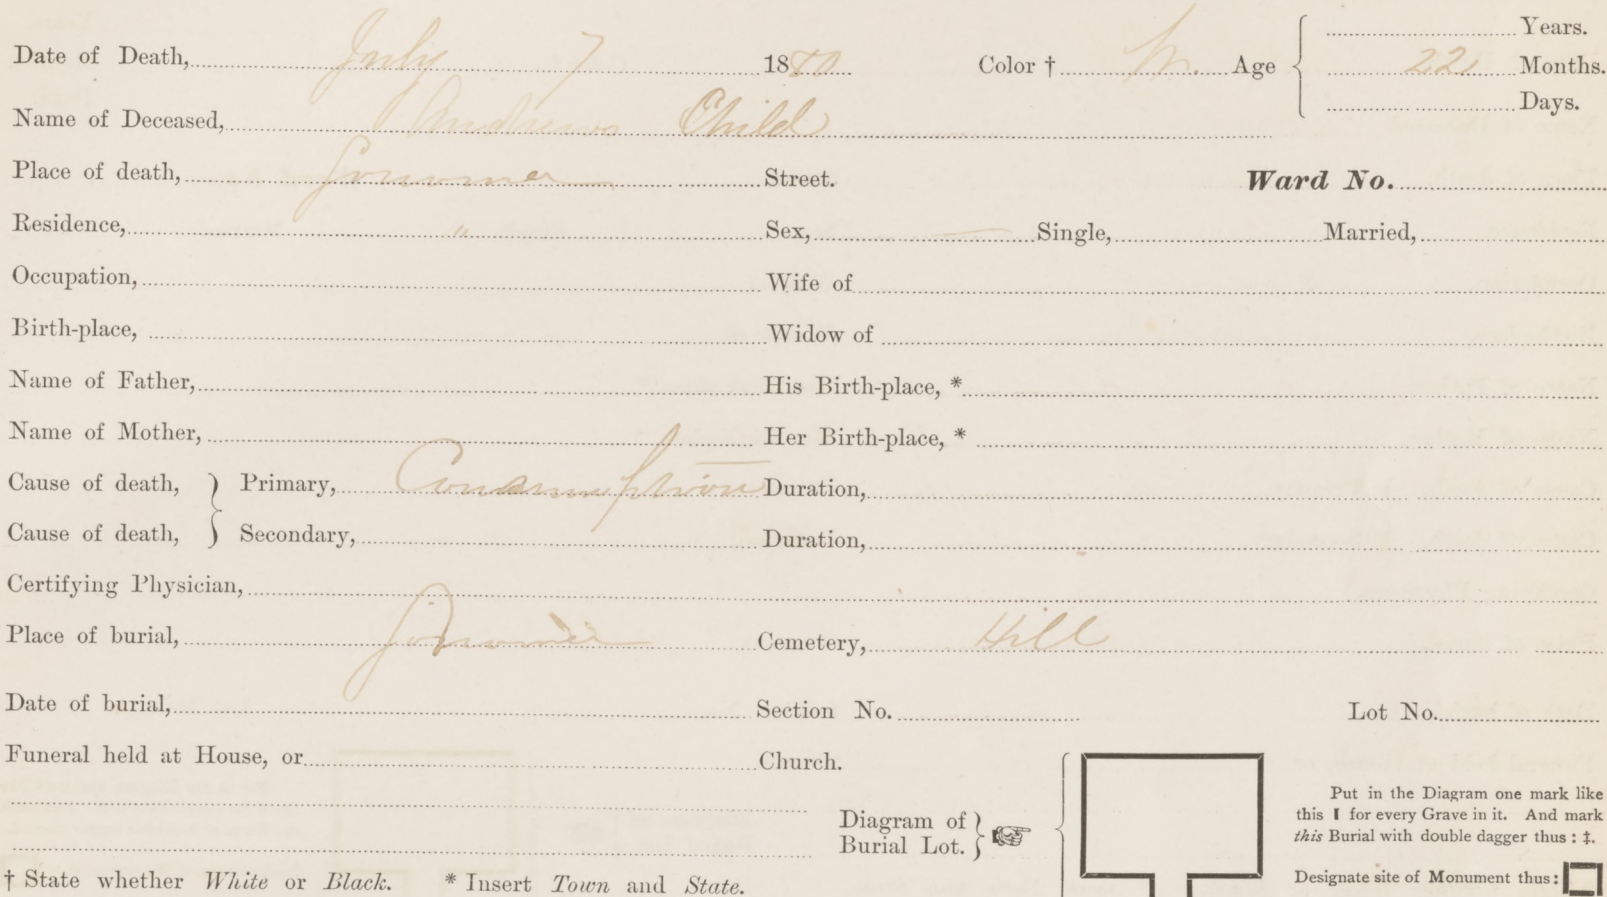 Years.
Date of Death, July 7 1880 Color † W. Age 22 Months.
Days.
Name of Deceased, Andrews Child
Place of death, Street. Ward No.
Residence, " Sex, Single, Married,
Occupation, Wife of
Birth-place, Widow of
Name of Father, His Birth-place, *
Name of Mother, Her Birth-place, *
Cause of death, Primary, Consumption Duration,
Cause of death, Secondary, Duration,
Certifying Physician,
Place of burial, Cemetery, Hill
Date of burial, Section No. Lot No.
Funeral held at House, or Church.
Put in the Diagram one mark like
this I for every Grave in it. And mark
this Burial with double dagger thus : ‡.
Diagram of
Burial Lot.
Designate site of Monument thus:
† State whether White or Black. * Insert Town and State.